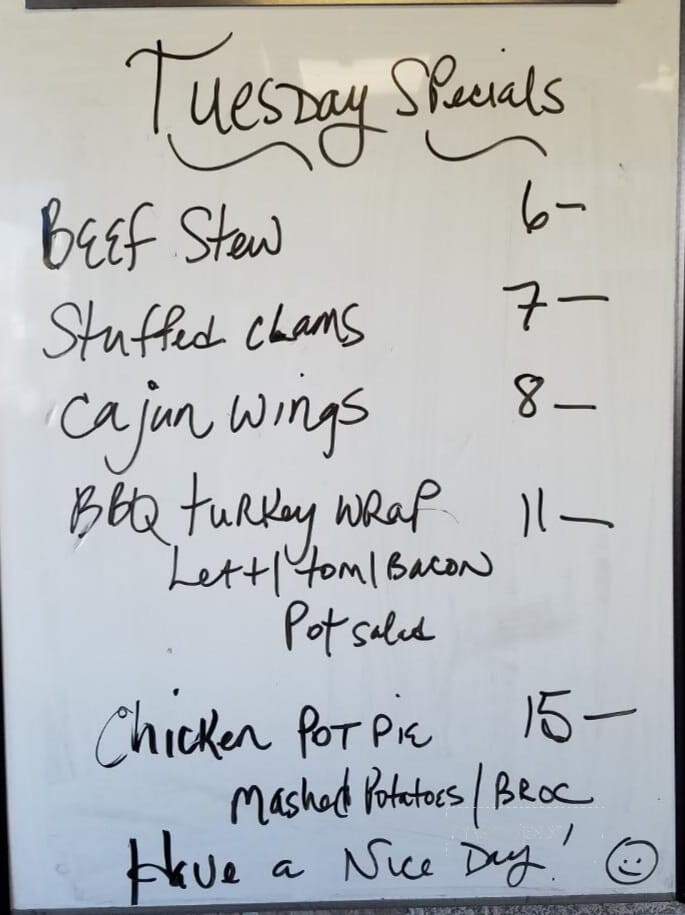 Tuesday Specials
Beef Stew 6-
Stuffed Clams 7-
Cajun Wings 8-
BBQ Turkey Wrap 11-
Lett/Tom/Bacon
Pot salad
Chicken Pot Pie 15-
Mashed Potatoes/Broc
Have a Nice Day!